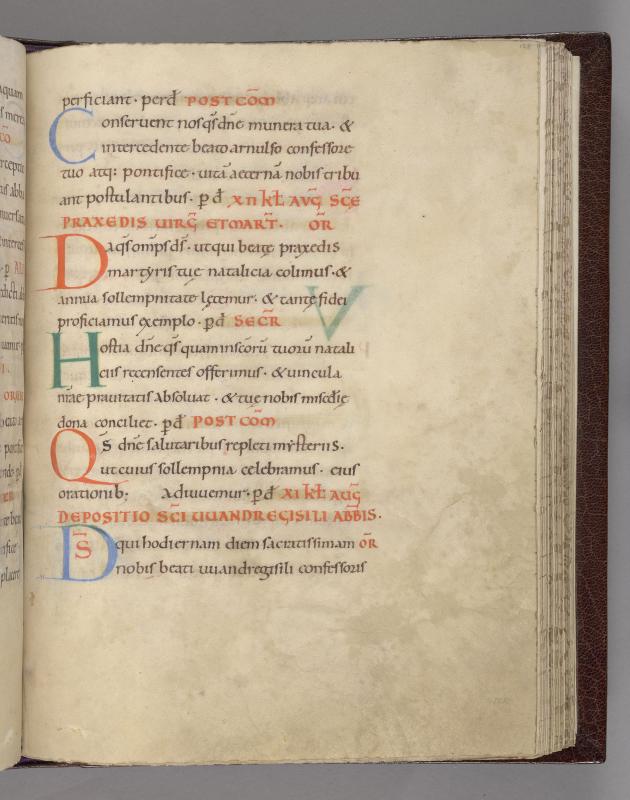 perficiant · perd̄ POST CŌM
Conseruent nos q̄s dn̄e munera tua · &
intercedente beato arnulfo confessore
tuo atq: pontifice · uitā aeternā nobis tribu
ant postulantibus · p d̄ XII KŁ AVḠ SC̄E
PRAXEDIS UIRḠ ET MART̄. OR̄
Da q̄s omp̄s d̄s · ut qui beatę praxedis
martyris tuę natalicia colimus · &
annua sollempnitate lętemur · & tantę fidei
proficiamus exemplo · p d̄ SECR̄
V
Hostia dn̄e q̄s quam in sc̄orū tuorū natali
ciis recensentes offerimus · & uincula
nr̄ae prauitatis absoluat · & tuę nobis mīsedię
dona conciliet · p d̄ POST CŌM
Qs̄ dn̄e salutaribus repleti mysteriis ·
ut cuius sollempnia celebramus · eius
orationib; adiuuemur · p d̄ XI KŁ AUḠ
DEPOSITIO SC̄I UUANDREGISILI ABB̄IS ·
DS̄ qui hodiernam diem sacratissimam OR̄
nobis beati uuandregisili confessoris